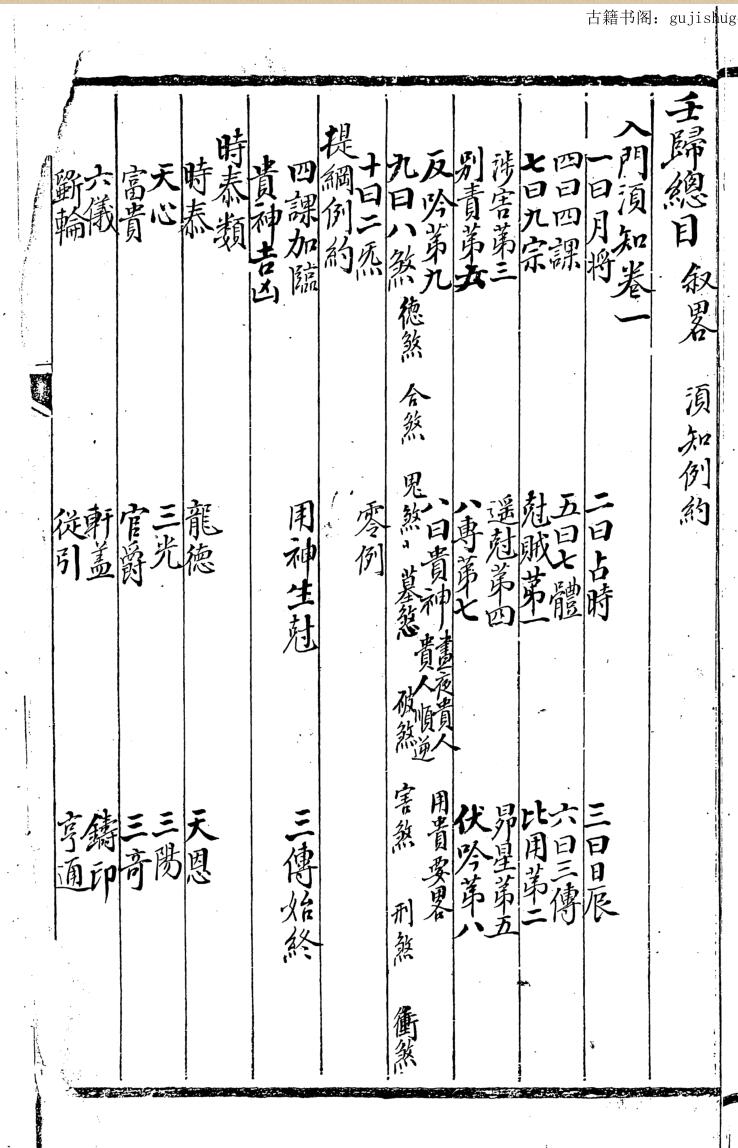 古籍书阁：gujishug
壬歸總目 叙畧 須知例約
入門須知卷一
一曰月将 二曰占時 三曰日辰
四曰四課 五曰七體 六曰三傳
七曰九宗 尅賊第一 比用第二
涉害第三 遥尅第四 昴星第五
別責第六 八專第七 伏吟第八
反吟第九 八曰貴神 晝夜貴人 貴人順逆 用貴要畧
九曰八煞 德煞 合煞 鬼煞 墓煞 破煞 害煞 刑煞 衝煞
十曰二炁 零例
提綱例約
四課加臨 用神生尅 三傳始終
貴神吉凶
時泰類
時泰 龍德 天恩
天心 三光 三陽
富貴 官爵 三奇
六儀 軒盖 鑄印
斲輪 從引 亨通